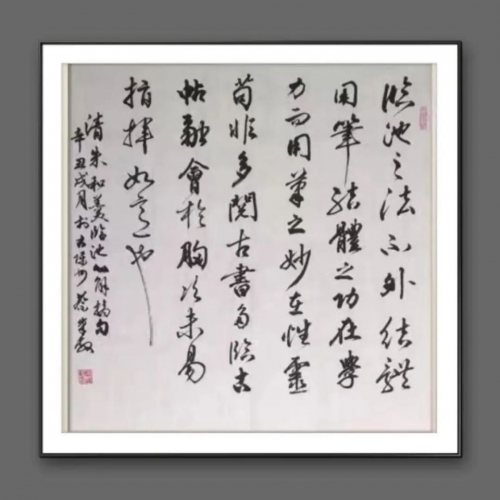 臨池之法不外结體
用筆结體之功在學
力而用筆之妙在性靈
苟非多閱古書多臨古
帖融會於胸次未易
指揮如意也
清朱和羹臨池心解摘句
辛丑戌月於古